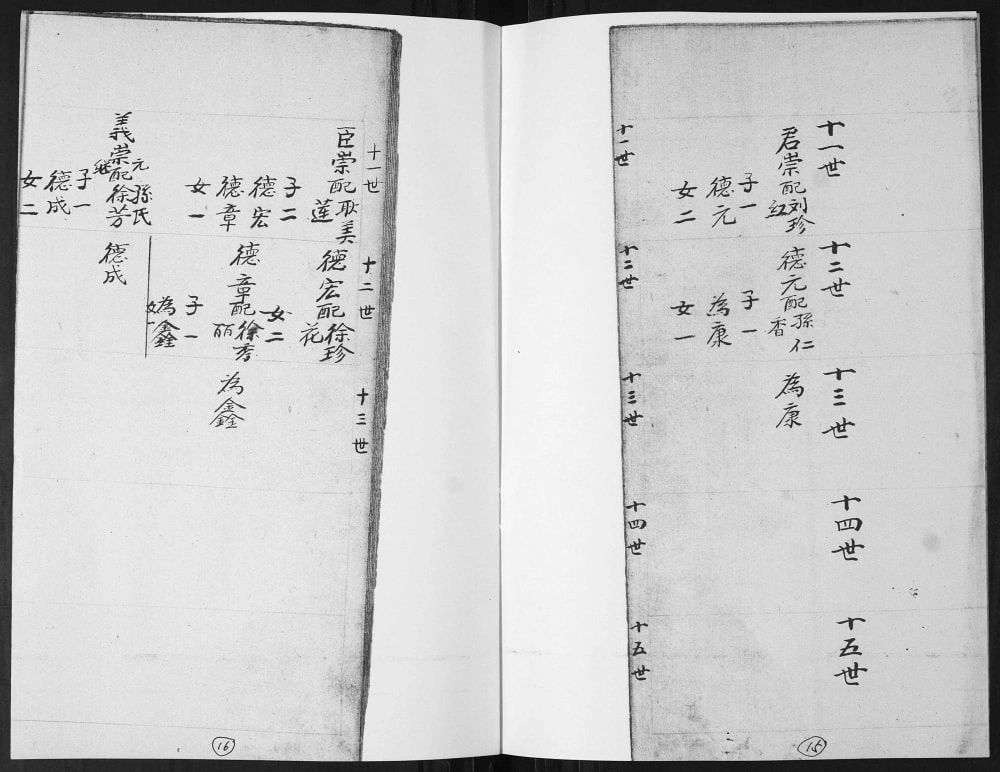 十一世
君崇配刘珍
紅
子一
德元
女二
十二世
德元配孫仁
香
子一
為康
女一
十三世
為康
十四世
十五世
十一世
十二世
十三世
十四世
十五世
15
十一世
臣崇配耿美
蓮
子二
德宏
德章
女一
義崇配徐芳
元孫氏
继
子一
德成
女二
十二世
德宏配徐珍
花
女二
德章配徐秀
丽
子一
為鑫
女一
德成
十三世
為鑫
16